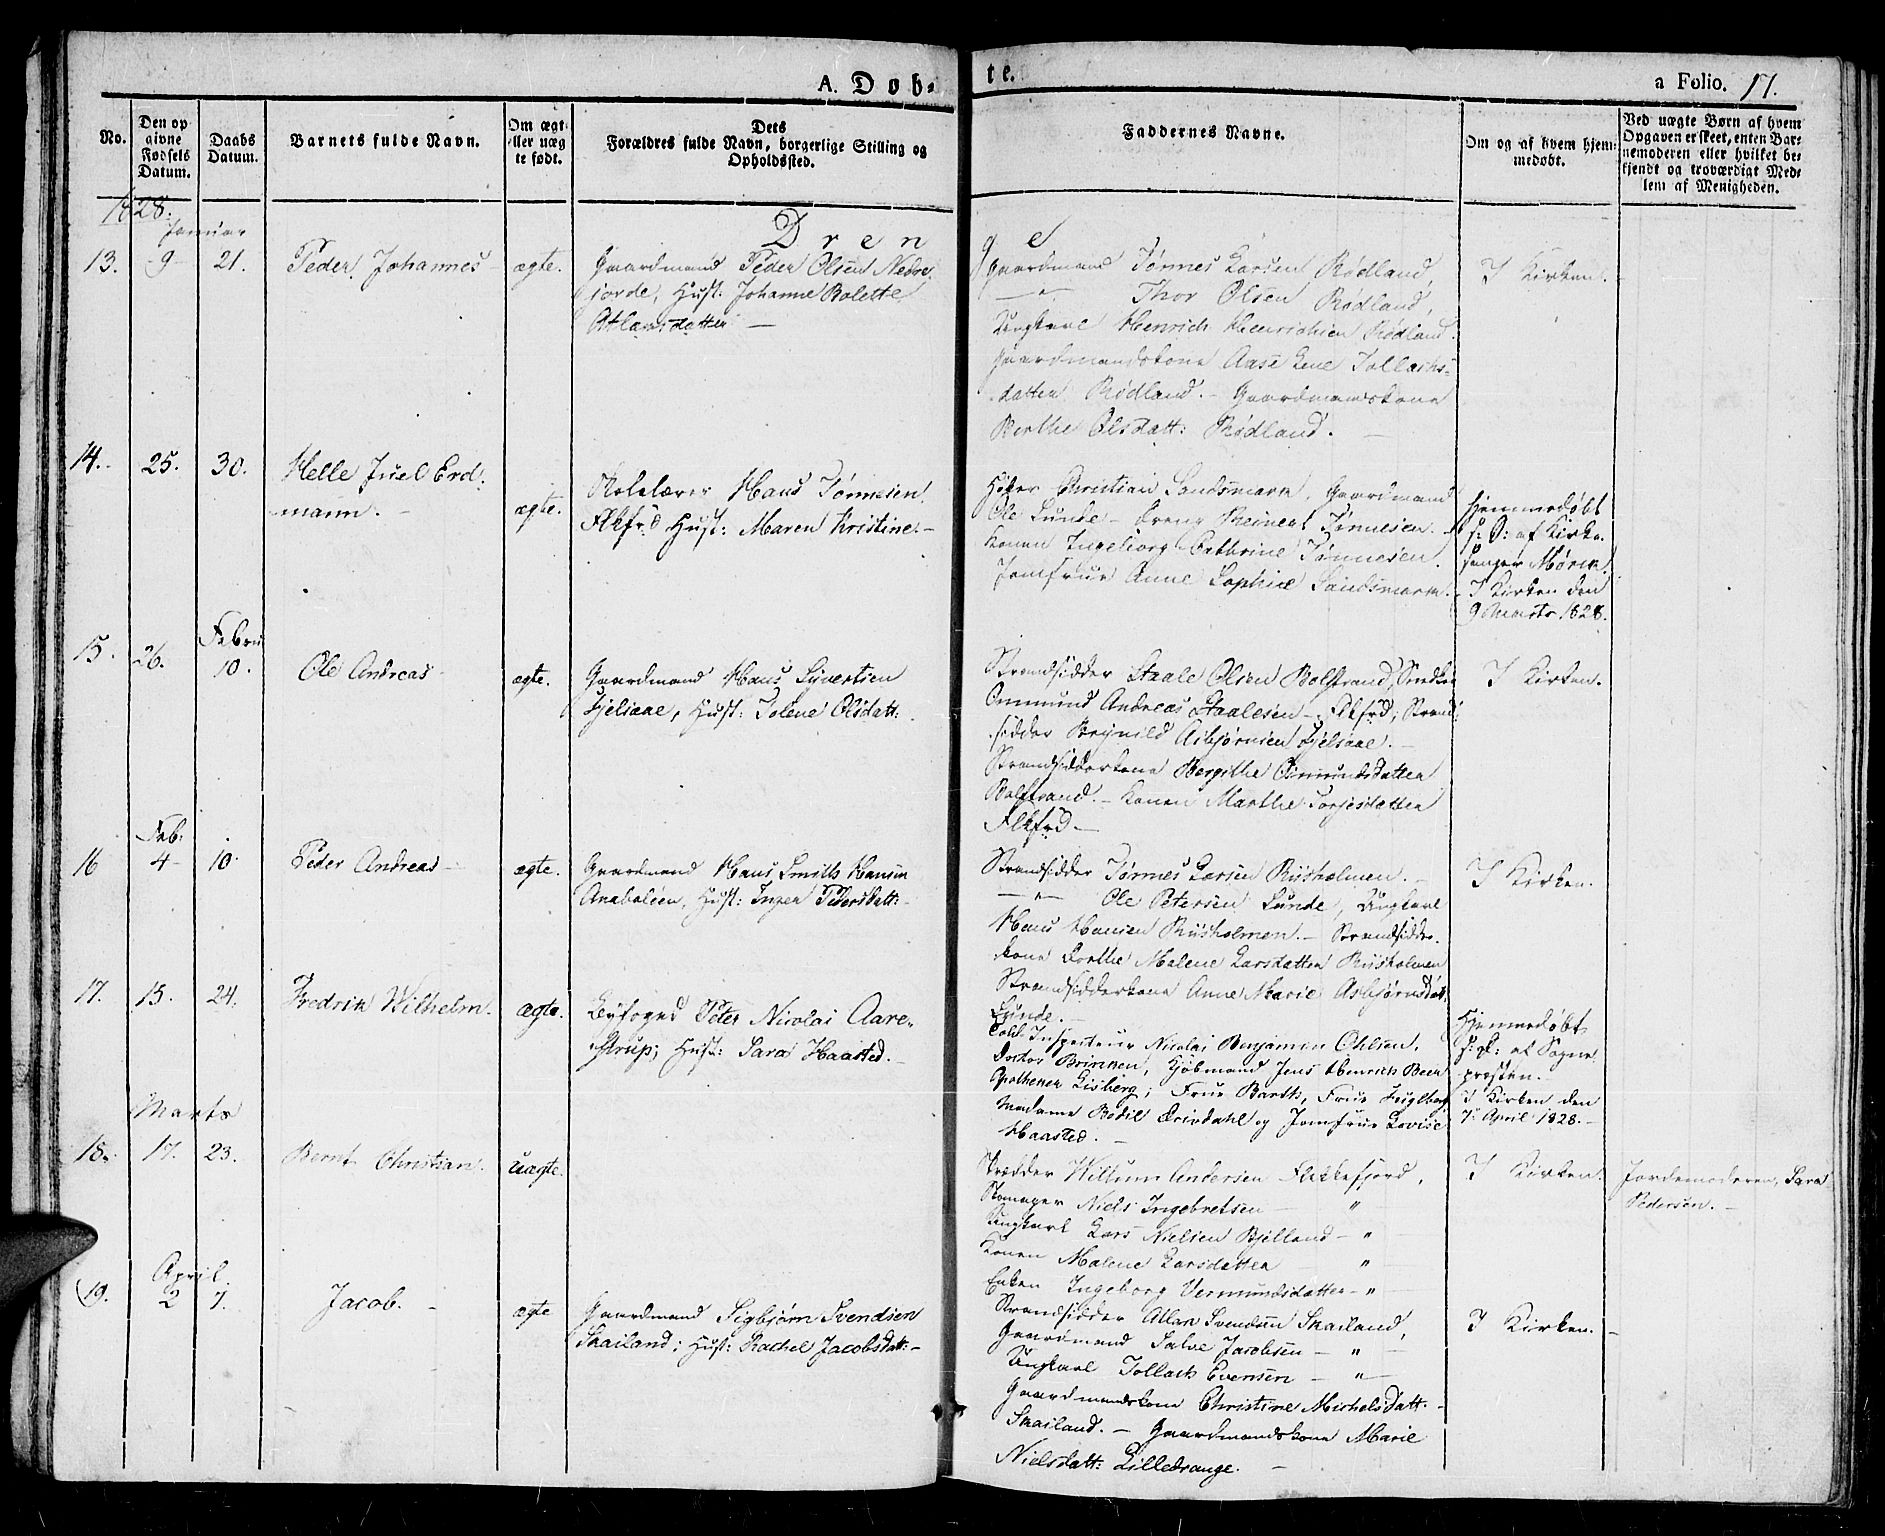 A. Døb-
te.
a Folio. 17.
No.
Den op
givne
Fødsels
Datum.
Daabs
Datum.
Barnets fulde Navn.
Om ægt-
eller uæg
te født.
Dets
Forældres fulde Navn, borgerlige Stilling og
Opholdssted.
Faddernes Navne.
Om og af hvem hjem-
medøbt.
Ved uægte Børn af hvem
Opgaven er skeet, enten Bar-
nemoderen eller hvilket be-
kjendt og troværdigt Med-
lem af Menigheden.
1828.
Januar
Dren
ge
13. 9 21. Peder Johannes ægte.
Gaardmand Peder Olsen Nedre
fjorde, Hust: Johanne Bolette
Atlaksdatter —
Gaardmand Tønnes Larsen Rødland,
—"— Thor Olsen Rødland,
Ungkarl Henrich Henrichsen Rødland.
Gaardmandskone Aase Lene Tollachs-
datter Rødland. – Gaardmandskone
Berthe Olsdatt: Rødland. —
I Kirken.
14. 25. 30. Helle Juel Erd-
mann. – ægte.
Skolelærer Hans Tønnesen
Flkfrd Hust: Maren Kristine. –
Christian Sandsmark, Gaardmand
Ole Lunde – Dreng Reinert Tønnesen. –
Konen Ingeborg Cathrine Tønnesen.
Jomfrue Anne Sophie Sandsmark. –
Hjemmedøbt
s: D: af Kirke-
sanger Mørch.
I Kirken den
9 Marts 1828.
Febru
15. 26. 10. Ole Andreas ægte.
Gaardmand Hans Syvertsen
Fjelsaae, Hust: Tolene Olsdatt:
Strandsidder Staale Olsen Bolstrand, Smeden
Ommund Andreas Staalesen – Flkfrd; Strand-
sidder Brynild Asbjørnsen Fjelsaae. –
Strandsidderkone Bergithe Ommundsdatter
Bolstrand. – Konen Marthe Torjesdatter
Flkfrd —
I Kirken.
Feb:
16 4 10. Peder Andreas – ægte.
Gaardmand Hans Smith Hansen
Anabaløen, Hust: Inger Pedersdatt: –
Strandsidder Tønnes Larsen Riisholmen. –
—"— Ole Petersen Lunde, Ungkarl
Hans Hansen Riisholmen. – Strandsidder-
kone Dorthe Malene Larsdatter Riisholmen
Strandsidderkone Anne Marie Asbjørnsdatt:
Lunde. –
I Kirken.
17. 15. 24. Fredrik Wilhelm. ægte.
Byfoged Peter Nicolai Aare-
strup; Hust: Sara Haasted. –
Told Inspecteur Nicolai Benjamin Ohlsen,
Doctor Brinken, Kjøbmand Jens Henrich Beer
Apotheker Eisberg; Frue Barth, Frue Fuglberg
Madame Bodil Drivdahl og Jomfrue Lovise
Haasted. –
Hjemmedøbt
s: D: af Sogne
præsten. –
I Kirken den
7: April 1828. –
Marts
18. 17. 23. Bernt Christian. uægte.
Skrædder Willum Andersen Flekkefjord,
Skomager Niels Ingebretsen — "
Ungkarl Lars Nielsen Bjelland – "
Konen Malene Larsdatter — "
Enken Ingeborg Vermundsdatter – "
I Kirken.
Jordemoderen, Sara
Pedersen. –
April
19. 2 7. Jacob. – ægte
Gaardmand Sigbjørn Svendsen
Skailand; Hust: Rachel Jacobsdatt: –
Strandsidder Atlak Svendsen Skailand,
Gaardmand Salve Jacobsen – "
Ungkarl Tollach Evensen – "
Gaardmandskone Christine Michelsdatt: –
Skailand. – Gaardmandskone Marie
Nielsdatt: Lilledrange. –
I Kirken. –